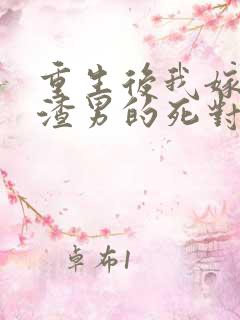 重生後我嫁
渣男的死對
卓布1